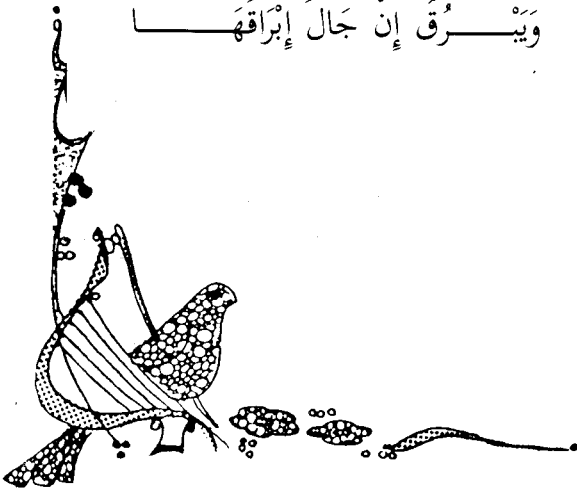 وَيَبْـــــرُقُ إِنْ جَالَ إِبْرَاقُهَـــــا